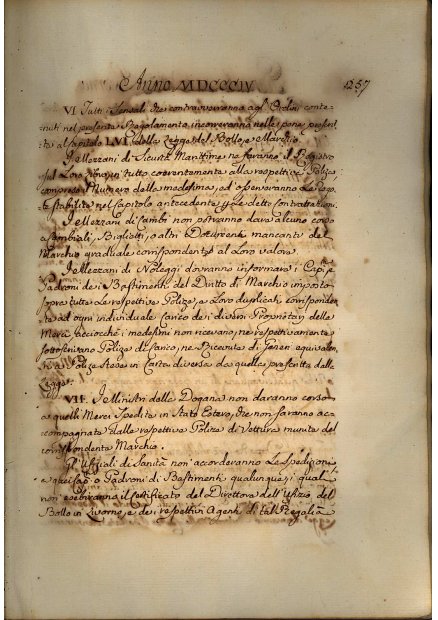 Anno MDCCCIV 1257
VI. Tutti i Sensali che contravverranno agl' Ordini conte-
nuti nel presente Regolamento incorreranno nelle pene prescrit-
te al Capitolo LVI. della Legge del Bollo, e Marchio
I Mezzani di Sicurtà Marittime ne faranno il Registro
sul Loro Libro, in tutto coerentemente alla respettiva Polizza
compreso il Numero della medesima, ed osserveranno le
stabilite nel Capitolo antecedente per le dette contrattazioni.
I Mezzani di Cambi non potranno dare alcuno corso
a Cambiali, Biglietti, o altri Documenti mancanti del
Marchio graduale corrispondente al Loro valore.
I Mezzani di Noleggi dovranno informare i Capi, e
Padroni dei Bastimenti del Diritto di Marchio imposto
sopra tutte le respettive Polizze, e Loro duplicati corrisponden-
te ad ogni individuale carico dei diversi Proprietarj delle
Merci acciocchè i medesimi non ricevano, ne respettivamente
sottoscrivano Polizze di Carico, ne Ricevute di Generi equivalenti
Polizze stese in Carta diversa da quella prescritta dalla
Legge.
VII. I Ministri delle Dogane non daranno corso
a quelli Merci Spedite in Stato Estero, che non saranno ac-
compagnate dalle respettive Polizze di Vettura munite del
corrispondente Marchio.
Gl' Uffiziali di Sanità non accorderanno le Spedizioni
a quei Cap. o Padroni di Bastimenti qualunque, i quali
non esibiranno il Certificato del Direttore dell' Ufizio del
Bollo in Livorno, e dei respettivi Agenti di tal Regalia